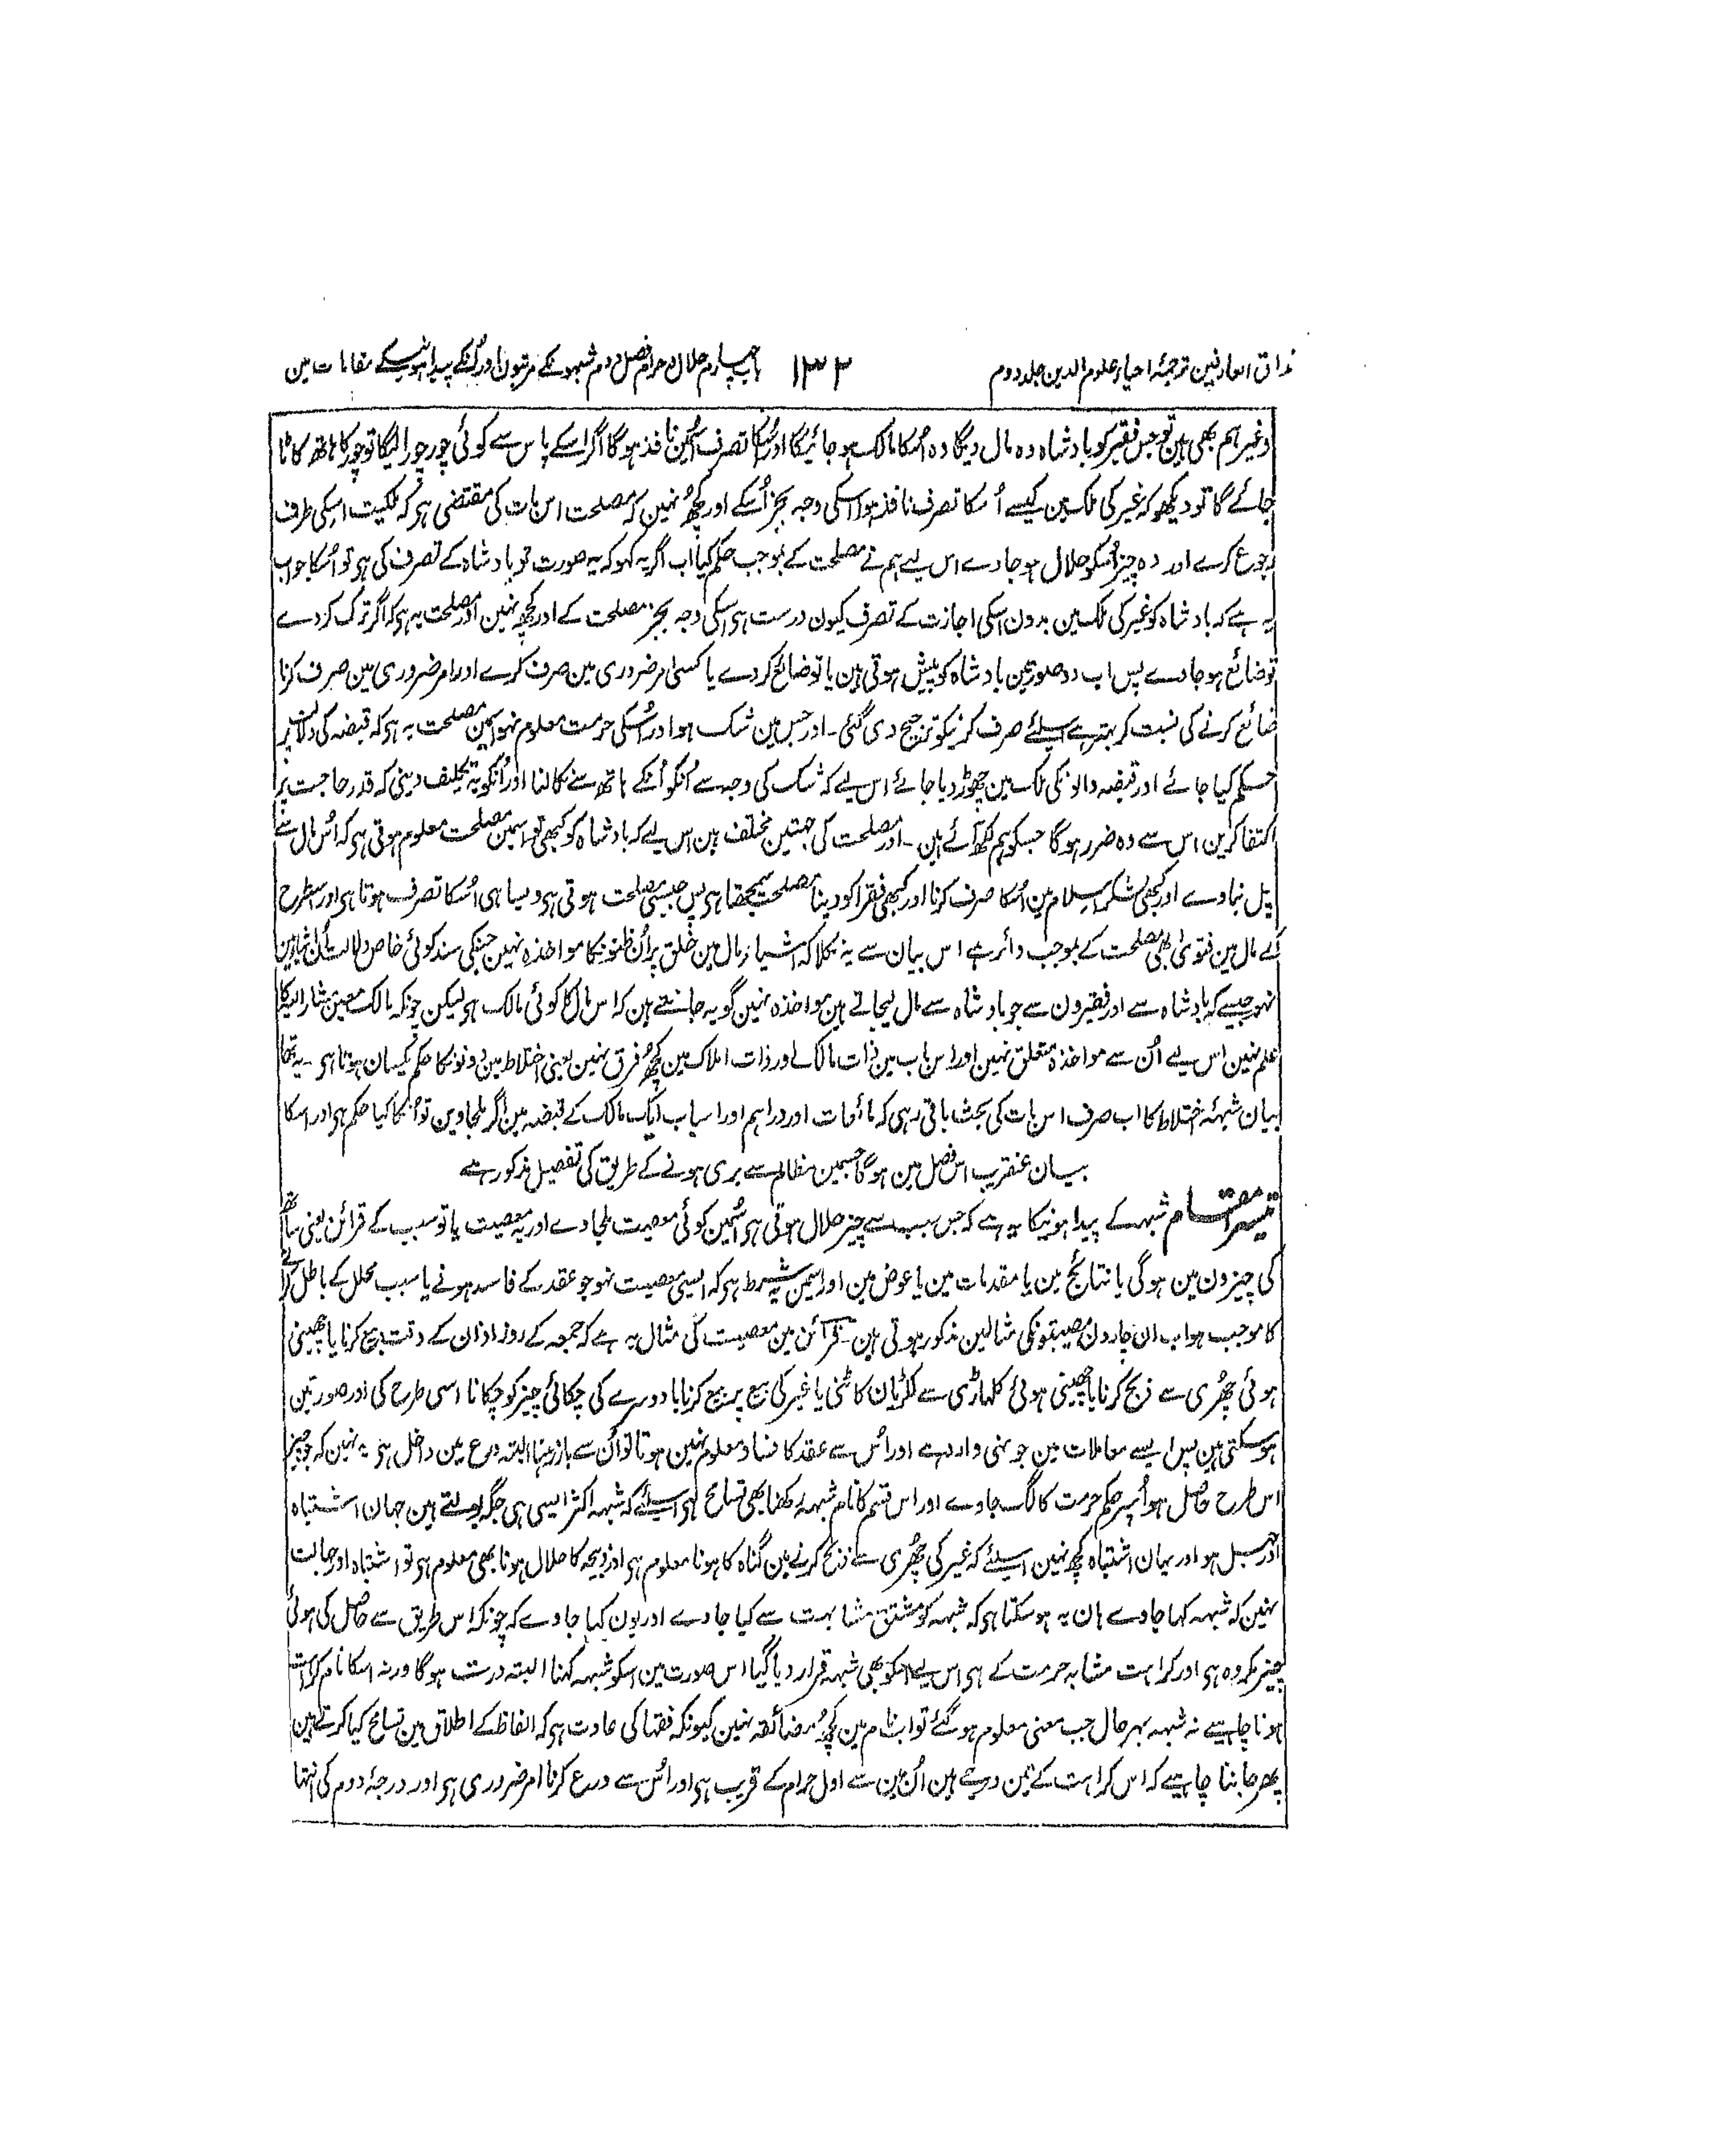 مذاق العارفین ترجمۂ احیاء علوم الدین جلد دوم ۱۳۲ باب چہارم حلال و حرام فصل دوم شبہونکے مرتبون اور اُنکے پیدا ہونیکے مقامات مین
وغیرہم بھی ہین تو جس فقیر کو بادشاہ وہ مال دیگا وہ اُسکا مالک ہو جائیگا اور اُسکا تصرف اُسمین نافذ ہوگا اگر اسکے پاس سے کوئی چور چورا لیگا تو چور کا ہاتھ کاٹا
جائے گا تو دیکھو کہ غیر کی ملک مین کیسے اُسکا تصرف نافذ ہوا اسکی وجہ بجز اُسکے اور کچھ نہین کہ مصلحت اس بات کی مقتضی ہی کہ ملکیت اسکی طرف
رجوع کرے اور وہ چیز اُسکو حلال ہو جاوے اس لیے ہم نے مصلحت کے بموجب حکم کیا اب اگر یہ کہو کہ یہ صورت تو بادشاہ کے تصرف کی ہی تو اُسکا جواب
یہ ہے کہ بادشاہ کو غیر کی ملک مین بدون اسکی اجازت کے تصرف کیون درست ہی اسکی وجہ بجز مصلحت کے اور کچھ نہین اور مصلحت یہ ہی کہ اگر ترک کردے
تو ضائع ہو جاوے پس اب دو صورتین بادشاہ کو پیش ہوتی ہین یا تو ضائع کردے یا کسی امر ضروری مین صرف کرے اور امر ضروری مین صرف کرنا
ضائع کرنے کی نسبت کر بہتر ہے اسلئے صرف کرنیکو ترجیح دی گئی ۔ اور جس مین شک ہو اور اُسکی حرمت معلوم نہو اسمین مصلحت یہ ہی کہ قبضہ کی دلالت پر
حکم کیا جائے اور قبضہ والونکی ملک مین چھوڑ دیا جائے اس لیے کہ شک کی وجہ سے اُنکو اُنکے ہاتھ سے نکالنا اور اُنکو یہ تکلیف دینی کہ قدر حاجت پر
اکتفا کرین اس سے وہ ضرر ہوگا جسکو ہم لکھ آئے ہین ۔ اور مصلحت کی جہتین مختلف ہین اس لیے کہ بادشاہ کو کبھی تو اسمین مصلحت معلوم ہوتی ہی کہ اُس مال سے
پل بناوے اور کبھی لشکر اسلام مین اُسکا صرف کرنا اور کبھی فقرا کو دینا مصلحت سمجھتا ہی پس جیسی مصلحت ہوتی ہی ویسا ہی اُسکا تصرف ہوتا ہی اور اسطرح
کے مال مین فتوی بھی مصلحت کے بموجب دائر ہے اس بیان سے یہ نکلا کہ اشیاء مال مین خلق پر اُن ظنونکا مواخذہ نہین جنکی سند کوئی خاص دلالت اُن اشیا مین
نہو جیسے کہ بادشاہ سے اور فقیرون سے جو بادشاہ سے مال لیجاتے ہین مواخذہ نہین گو یہ جانتے ہین کہ اس مال کا کوئی مالک ہی لیکن چونکہ مالک معین مشار الیہ کا
علم نہین اس لیے اُن سے مواخذہ متعلق نہین اور اس باب مین ذات مالک اور ذات املاک مین کچھ فرق نہین یعنی اختلاط مین دونونکا حکم یکسان ہوتا ہی ۔ یہ تھا
بیان شبہۂ اختلاط کا اب صرف اس بات کی بحث باقی رہی کہ مائعات اور دراہم اور اسباب ایک مالک کے قبضہ مین اگر ملجاوین تو اُنکا کیا حکم ہی اور اسکا
بیان عنقریب اُس فصل مین ہوگا جسمین مظالم سے بری ہونے کے طریق کی تفصیل مذکور ہے
تیسرا مقام شبہہ کے پیدا ہونیکا یہ ہے کہ جس سبب سے چیز حلال ہوتی ہی اُسمین کوئی معصیت ملجاوے اور یہ معصیت یا تو سبب کے قرائن یعنی ساتھ
کی چیزون مین ہوگی یا نتائج مین یا مقدمات مین یا عوض مین اور اسمین یہ شرط ہی کہ ایسی معصیت نہو جو عقد کے فاسد ہونے یا سبب محلل کے باطل کرنے
کا موجب ہو اب ان چارون معصیتونکی مثالین مذکور ہوتی ہین ۔ قرائن مین معصیت کی مثال یہ ہے کہ جمعہ کے روز اذان کے وقت بیع کرنا یا چھینی
ہوئی چھُری سے ذبح کرنا یا چھینی ہوئی کلہاڑی سے لکڑیان کاٹنی یا غیر کی بیع پر بیع کرنا یا دوسرے کی چکائی چیز کو چکانا اسی طرح کی اور صورتین
ہوسکتی ہین پس ایسے معاملات مین جو نہی وارد ہے اور اُس سے عقد کا فساد معلوم نہین ہوتا تو اُن سے باز رہنا البتہ ورع مین داخل ہی یہ نہین کہ جو چیز
اس طرح حاصل ہو اُسپر حکم حرمت کا لگ جاوے اور اس قسم کا نام شبہہ رکھنا بھی تسامح ہی اسلئے کہ شبہہ اکثر ایسی ہی جگہ بولتے ہین جہان اشتباہ
اور جہل ہو اور یہان اشتباہ کچھ نہین اسلئے کہ غیر کی چھُری سے ذبح کرنے مین گناہ کا ہونا معلوم ہی اور ذبیحہ کا حلال ہونا بھی معلوم ہی تو اشتباہ اور جہالت
نہین کہ شبہہ کہا جاوے ہان یہ ہو سکتا ہی کہ شبہہ کو مشتق مشابہت سے کیا جاوے اور یون کہا جاوے کہ چونکہ اس طریق سے حاصل کی ہوئی
چیز مکروہ ہی اور کراہت مشابہ حرمت کے ہی اس لیے اسکو بھی شبہہ قرار دیا گیا اس صورت مین اسکو شبہہ کہنا البتہ درست ہوگا ورنہ اسکا نام کراہت
ہونا چاہیے نہ شبہہ بہر حال جب معنی معلوم ہو گئے تو اب نام مین کچھ مضائقہ نہین کیونکہ فقہا کی عادت ہی کہ الفاظ کے اطلاق مین تسامح کیا کرتے ہین
پھر جاننا چاہیے کہ اس کراہت کے تین درجے ہین اُن مین سے اول حرام کے قریب ہی اور اُس سے ورع کرنا امر ضروری ہی اور درجۂ دوم کی انتہا